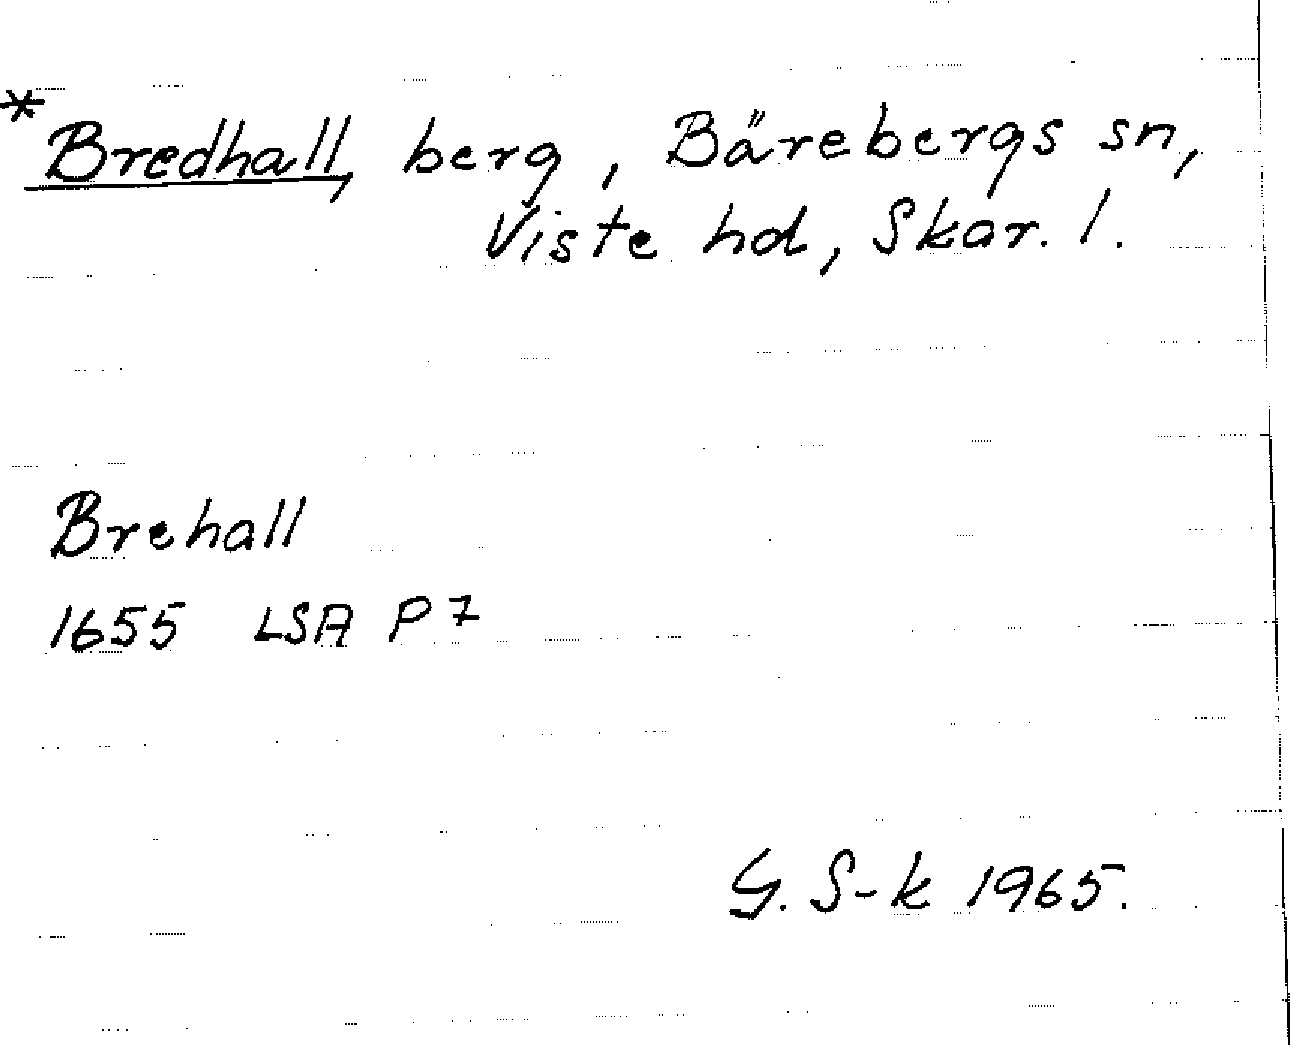 *Bredhall, berg, Bärebergs sn,
Viste hd, Skar. l.
Brehall
1655 LSA P 7
G. S-k 1965.